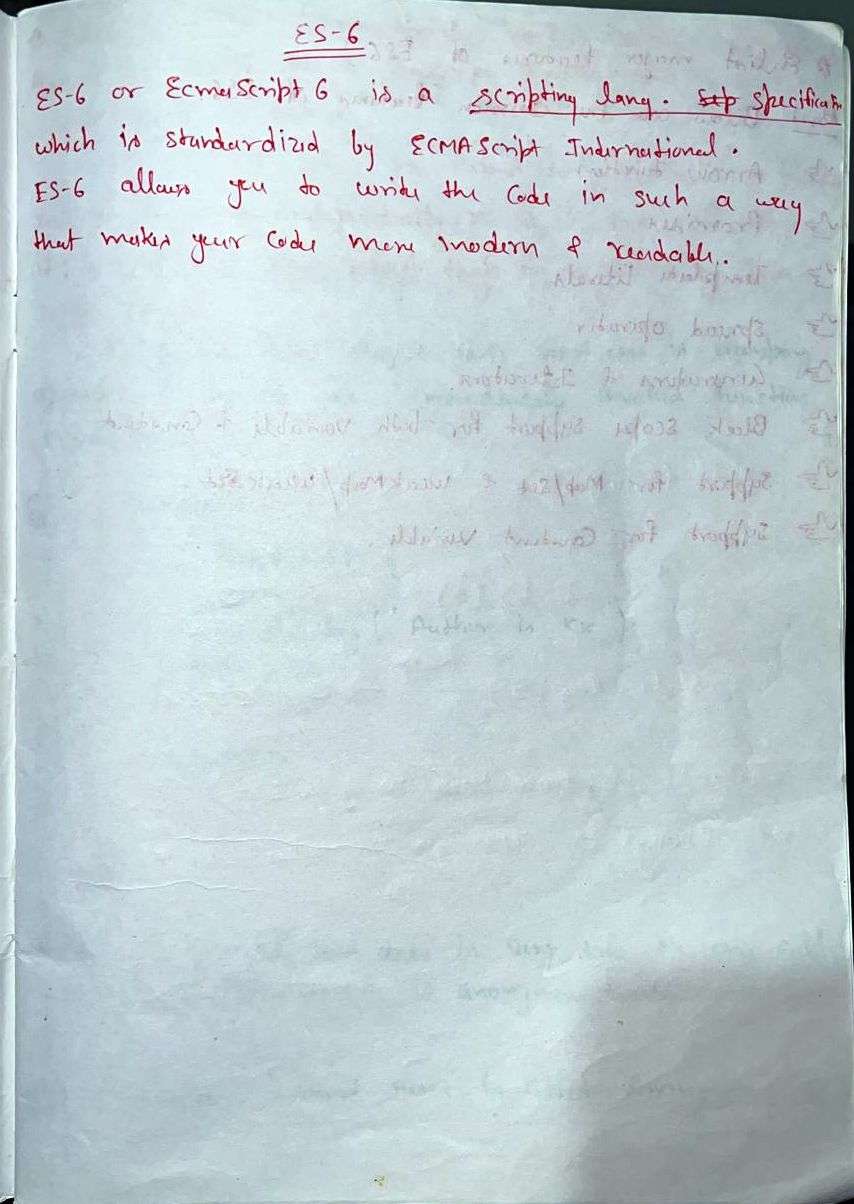 ES-6
ES-6 or EcmaScript 6 is a scripting lang. specification
which is standardized by ECMAScript International.
ES-6 allows you to write the code in such a way
that makes your code more modern & readable..